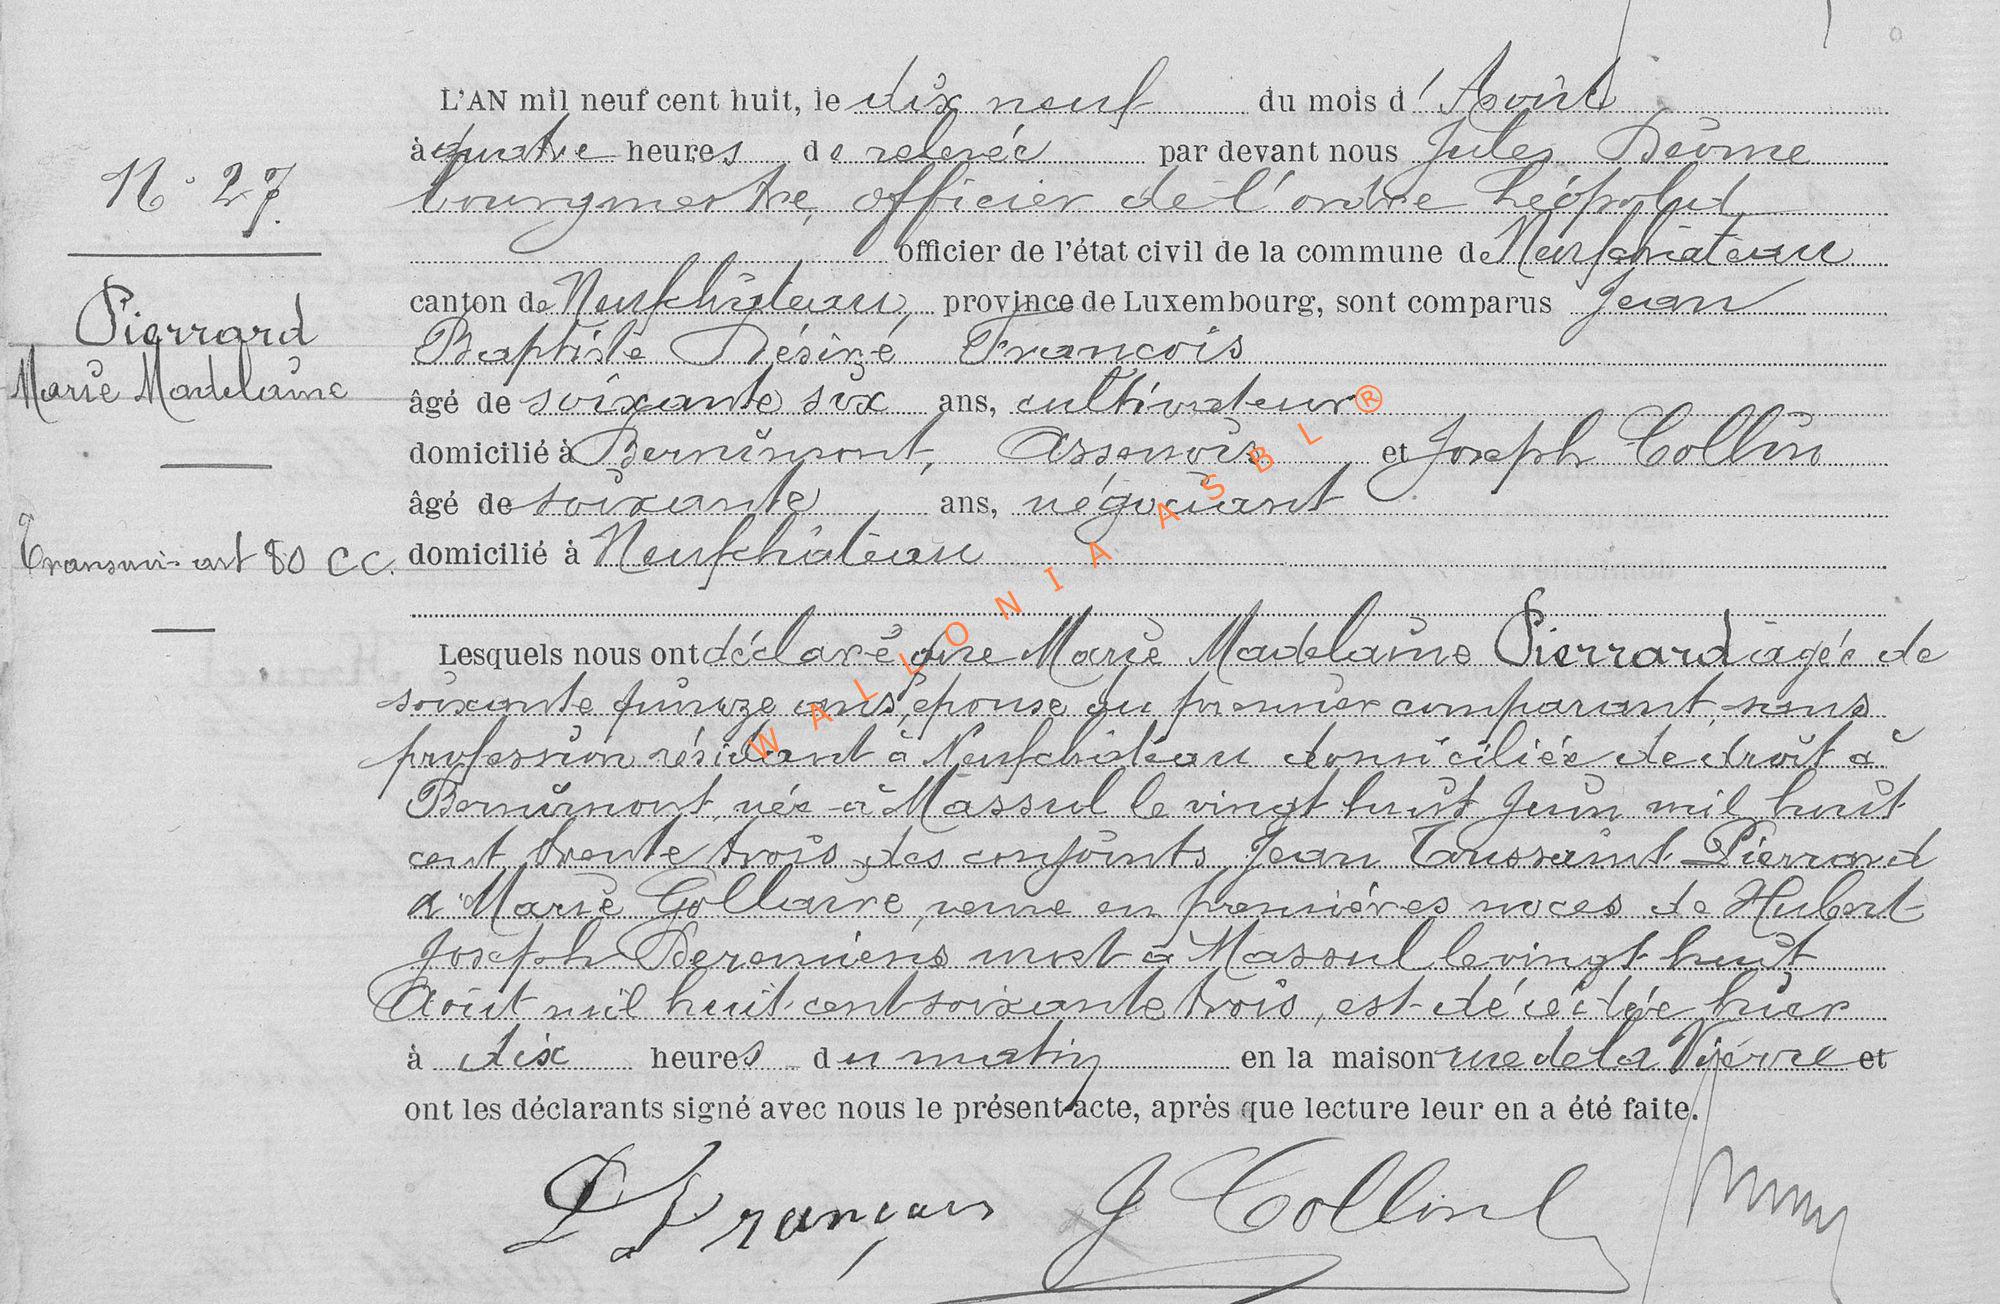 N° 27.
Pierrard
Marie Madelaine
Transmis art 80 CC.
L'AN mil neuf cent huit, le dix neuf du mois d'Août
à quatre heures de relevée par devant nous Jules
bourgmestre, officier de l'ordre Léopold
officier de l'état civil de la commune de Neufchateau
canton de Neufchâteau, province de Luxembourg, sont comparus Jean
Baptiste Désiré Francois
âgé de soixante six ans, cultivateur
domicilié à Bernimont, Assenois et Joseph Collin
âgé de soixante ans, négociant
domicilié à Neufchâteau
Lesquels nous ont déclaré que Marie Madelaine Pierrard agée de
soixante quinze ans, épouse du premier comparant, sans
profession résidant à Neufchâteau domiciliée de droit à
Bernimont, née à Massul le vingt huit Juin mil huit
cent trente trois des conjoints Jean Toussaint Pierrard
& Marie Gollaire, veuve en premières noces de Hubert
Joseph mort à Massul le vingt huit
Aout mil huit cent soixante trois, est décédée hier
à dix heures du matin en la maison rue de la Vierre et
ont les déclarants signé avec nous le présent acte, après que lecture leur en a été faite.
D François J Collin
WALLONIA ASBL®